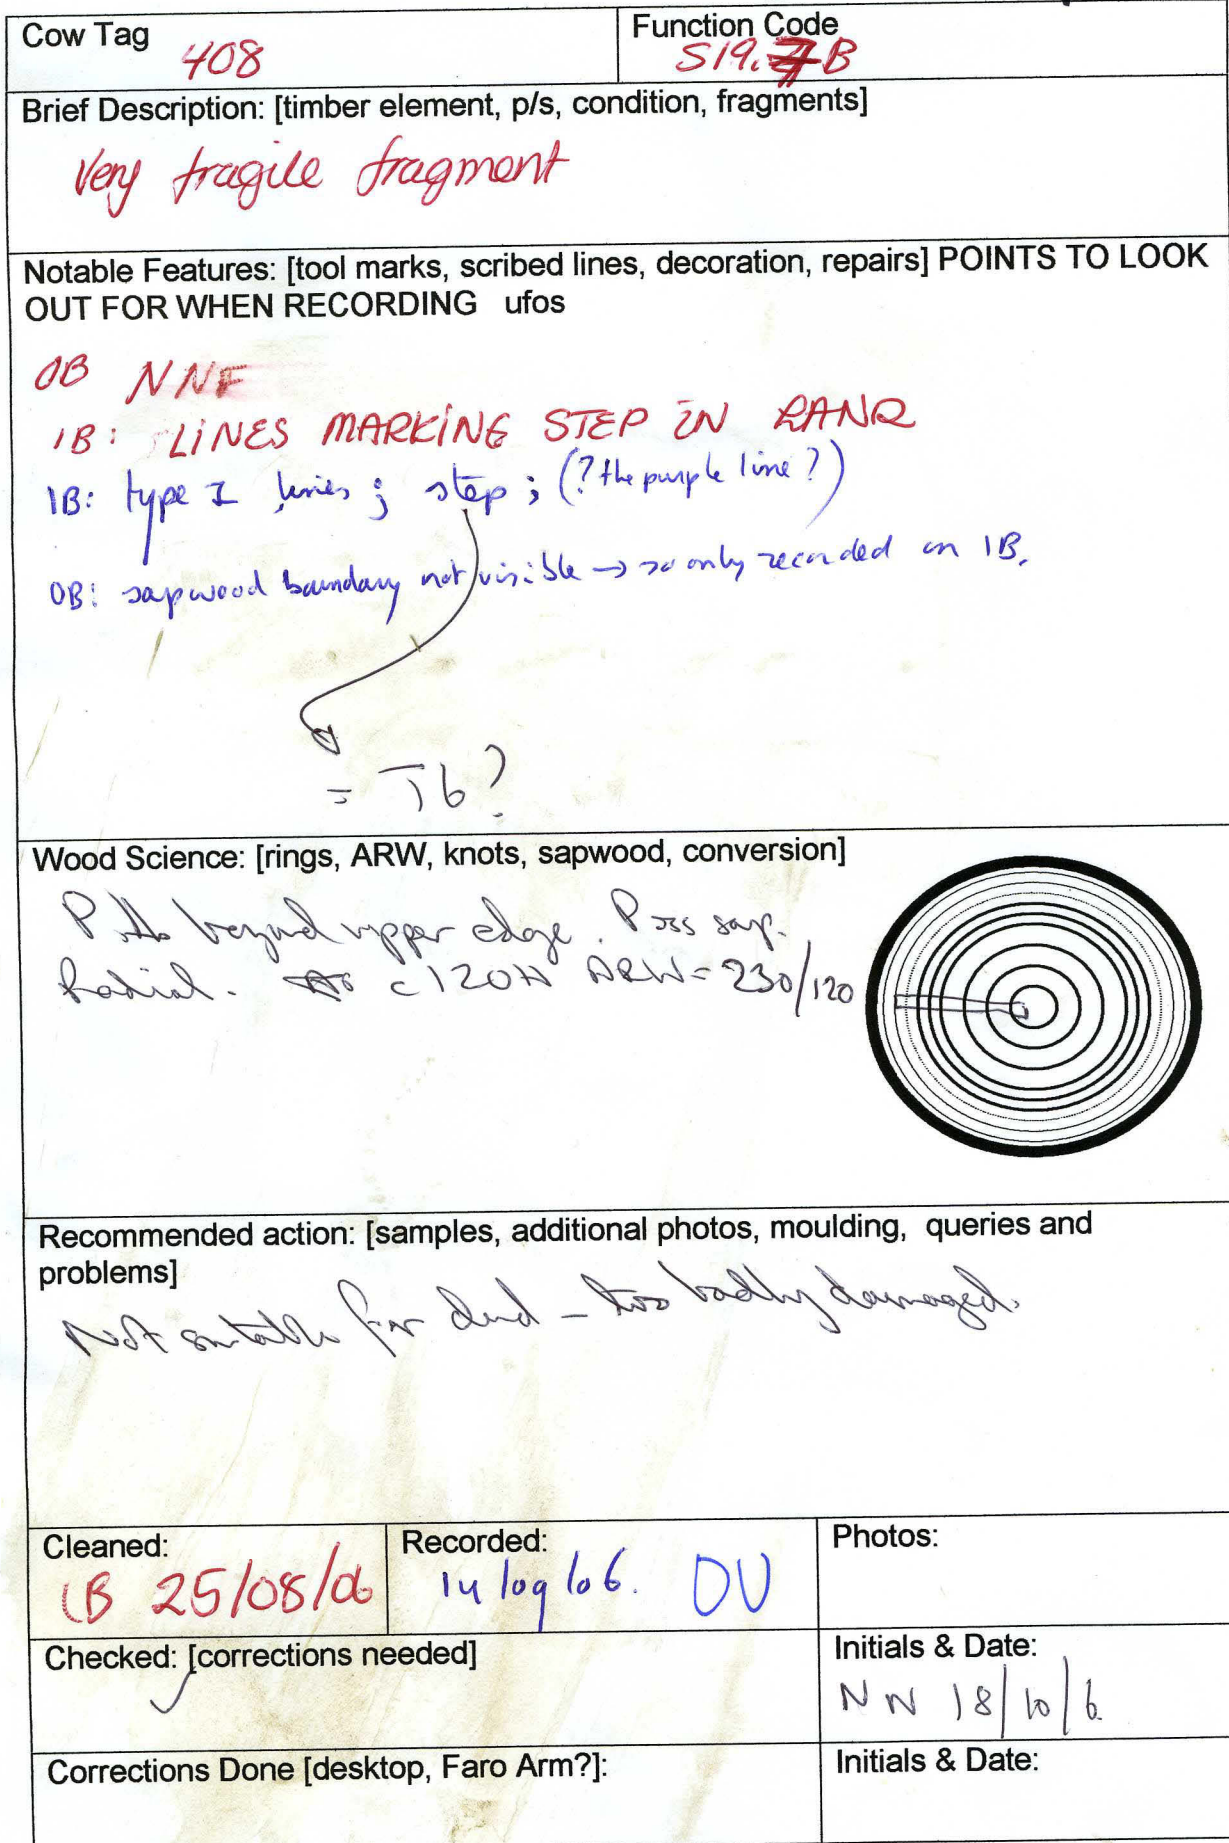 Cow Tag
408
Function Code
S19. B
Brief Description: [timber element, p/s, condition, fragments]
Very fragile fragment
Notable Features: [tool marks, scribed lines, decoration, repairs] POINTS TO LOOK
OUT FOR WHEN RECORDING ufos
OB NNF
IB: LINES MARKING STEP IN
IB: type I lines ; step ; (? the purple line ?)
OB: sapwood boundary not visible → so only recorded on IB.
= Tb?
Wood Science: [rings, ARW, knots, sapwood, conversion]
Pith beyond upper edge. Poss sap.
Radial. c 120 ARW = 230/120
Recommended action: [samples, additional photos, moulding, queries and
problems]
Not suitable for dend – too badly damaged.
Cleaned:
LB 25/08/06
Recorded:
14/09/06. OU
Photos:
Checked: [corrections needed]
✓
Initials & Date:
NN 18/10/6
Corrections Done [desktop, Faro Arm?]:
Initials & Date: